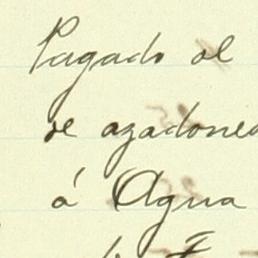 Pagado al
de azadones
á Agua